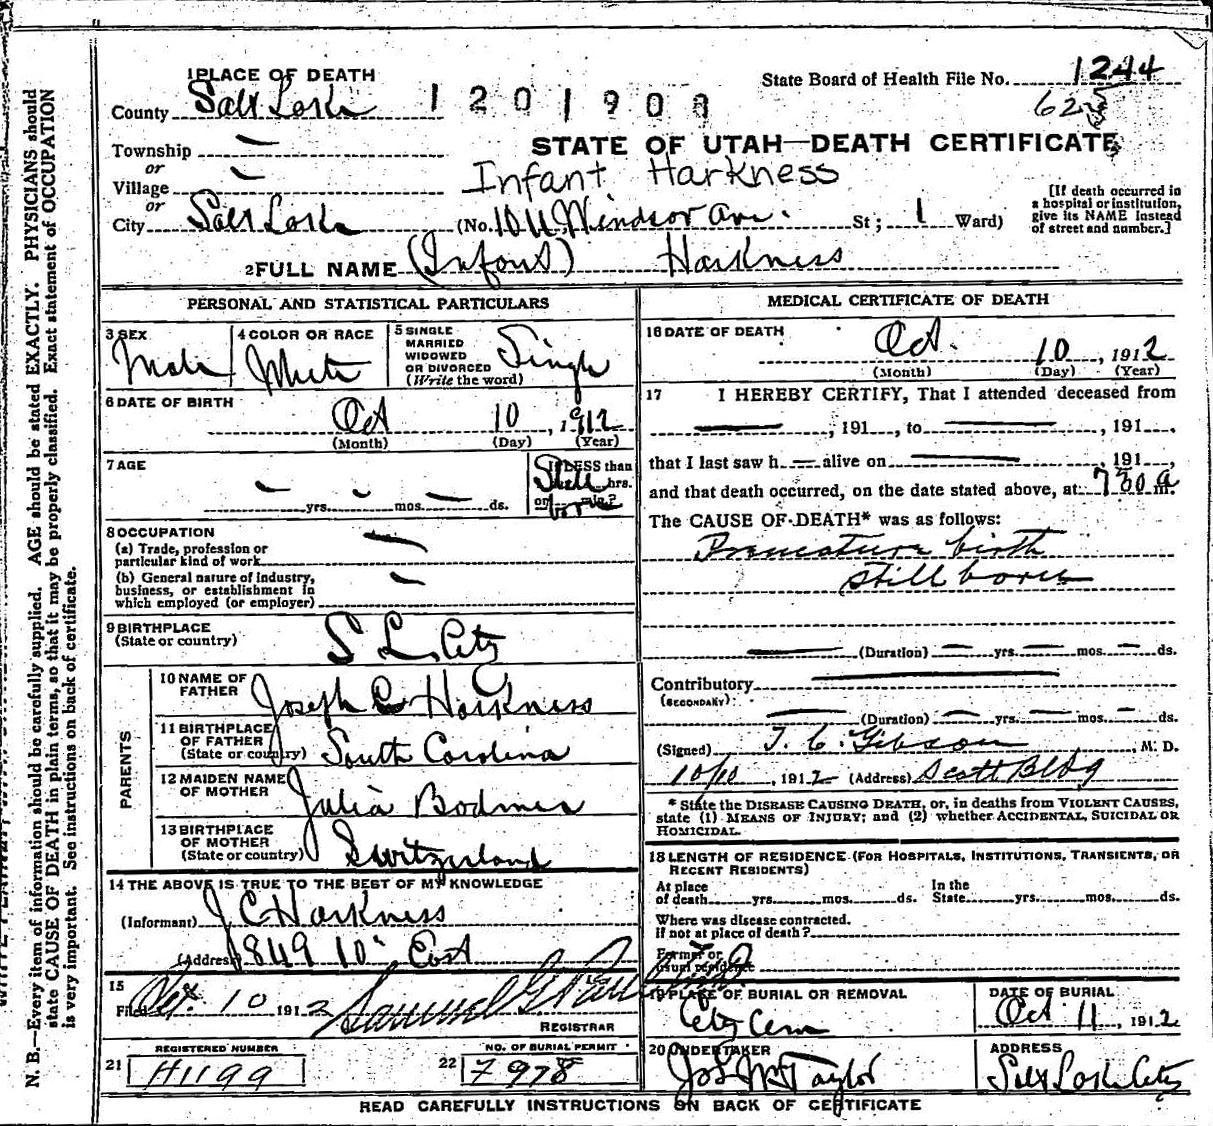 1 PLACE OF DEATH
State Board of Health File No. 1244
County Salt Lake 1201908
625
STATE OF UTAH—DEATH CERTIFICATE
Township —
or
Village —
Infant Harkness
or
City Salt Lake (No. 1011 Windsor Ave. St; 1 Ward)
[If death occurred in a hospital or institution, give its NAME instead of street and number.]
2 FULL NAME (Infant) Harkness
PERSONAL AND STATISTICAL PARTICULARS
3 SEX
Male
4 COLOR OR RACE
White
5 SINGLE
MARRIED
WIDOWED
OR DIVORCED
(Write the word)
Single
6 DATE OF BIRTH
Oct 10, 1912
(Month) (Day) (Year)
7 AGE
— yrs. — mos. — ds.
If LESS than
hrs.
or min.?
Still born
8 OCCUPATION
(a) Trade, profession or
particular kind of work —
(b) General nature of industry,
business, or establishment in
which employed (or employer) —
9 BIRTHPLACE
(State or country)
S L. City
PARENTS
10 NAME OF
FATHER
Joseph C Harkness
11 BIRTHPLACE
OF FATHER
(State or country)
South Carolina
12 MAIDEN NAME
OF MOTHER
Julia Bodmer
13 BIRTHPLACE
OF MOTHER
(State or country)
Switzerland
14 THE ABOVE IS TRUE TO THE BEST OF MY KNOWLEDGE
(Informant) J C Harkness
(Address) 1849 10" East
15
Filed Oct. 10 1912 Samuel G. Paul
REGISTRAR
REGISTERED NUMBER
21 H1199
NO. OF BURIAL PERMIT
22 7978
MEDICAL CERTIFICATE OF DEATH
16 DATE OF DEATH
Oct. 10, 1912
(Month) (Day) (Year)
17 I HEREBY CERTIFY, That I attended deceased from
—, 191 , to —, 191 .
that I last saw h — alive on — 191 ,
and that death occurred, on the date stated above, at 730 a m.
The CAUSE OF DEATH* was as follows:
Premature birth
still born
— (Duration) — yrs. — mos. — ds.
Contributory —
(SECONDARY)
— (Duration) — yrs. — mos. — ds.
(Signed) T. C. Gibson, M. D.
10/10, 1912 (Address) Scott Bldg
* State the DISEASE CAUSING DEATH, or, in deaths from VIOLENT CAUSES,
state (1) MEANS OF INJURY; and (2) whether ACCIDENTAL, SUICIDAL OR
HOMICIDAL.
18 LENGTH OF RESIDENCE (FOR HOSPITALS, INSTITUTIONS, TRANSIENTS, OR
RECENT RESIDENTS)
At place
of death yrs. mos. ds.
In the
State yrs. mos. ds.
Where was disease contracted.
if not at place of death?
Former or
usual residence
19 PLACE OF BURIAL OR REMOVAL
City Cem
DATE OF BURIAL
Oct 11, 1912
20 UNDERTAKER
Jos Wm Taylor
ADDRESS
Salt Lake City
READ CAREFULLY INSTRUCTIONS ON BACK OF CERTIFICATE
N. B.—Every item of information should be carefully supplied. AGE should be stated EXACTLY. PHYSICIANS should
state CAUSE OF DEATH in plain terms, so that it may be properly classified. Exact statement of OCCUPATION
is very important. See instructions on back of certificate.